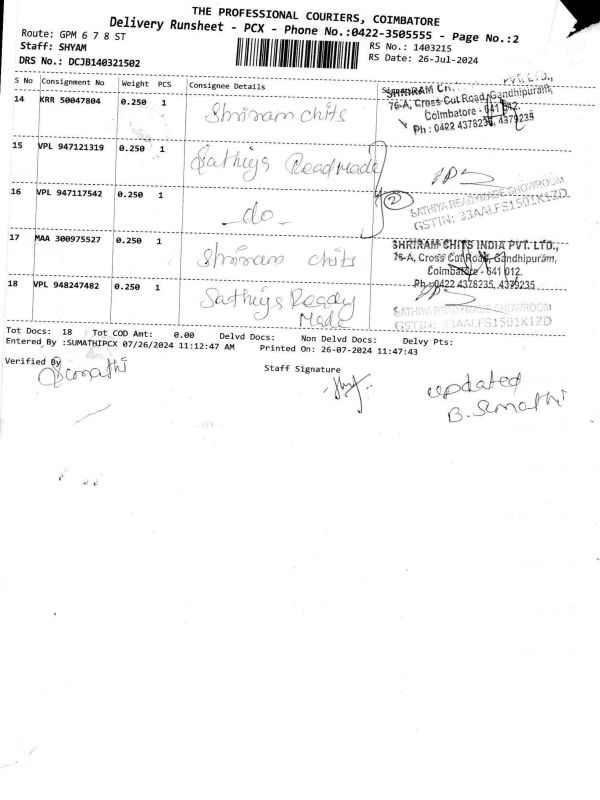 THE PROFESSIONAL COURIERS, COIMBATORE
Delivery Runsheet - PCX - Phone No.:0422-3505555 - Page No.:2
Route: GPM 6 7 8 ST
RS No.: 1403215
Staff: SHYAM
RS Date: 26-Jul-2024
DRS No.: DCJB140321502
S No Consignment No Weight PCS Consignee Details
14 KRR 50047804 0.250 1 Shriram chits
SHRIRAM CHITS PVT. LTD.,
76-A, Cross Cut Road, Gandhipuram,
Coimbatore - 641 012.
Ph : 0422 4378235, 4379235
15 VPL 947121319 0.250 1 Sathiys ReadMade
16 VPL 947117542 0.250 1 -do- 2
SATHIYA READYMADE SHOWROOM
GSTIN: 33AALFS1501K1ZD
17 MAA 300975527 0.250 1 Shriram chits
SHRIRAM CHITS INDIA PVT. LTD.,
76-A, Cross Cut Road, Gandhipuram,
Coimbatore - 641 012.
Ph : 0422 4378235, 4379235
18 VPL 948247482 0.250 1 Sathiys Ready
Made
SATHIYA READYMADE SHOWROOM
GSTIN: 33AALFS1501K1ZD
Tot Docs: 18 Tot COD Amt: 0.00 Delvd Docs: Non Delvd Docs: Delvy Pts:
Entered By :SUMATHIPCX 07/26/2024 11:12:47 AM Printed On: 26-07-2024 11:47:43
Verified By
Staff Signature
Sumathi
updated
B. Sumathi